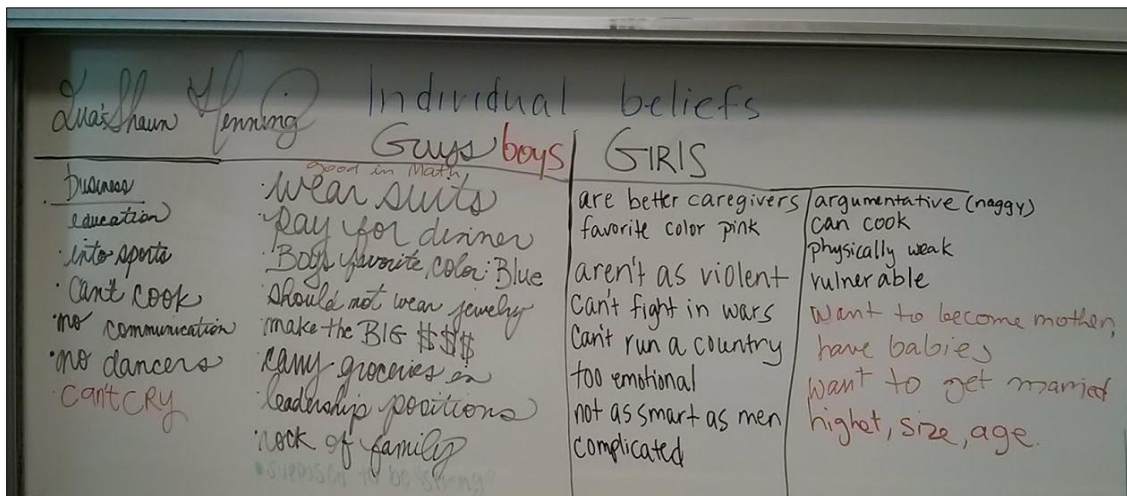 Qua'Shaun Henning
Individual beliefs
Guys boys
good in Math
business
education
· into sports
· Can't cook
· no communication
· no dancers
· can't CRY
· wear suits
· Pay for dinner
· Boys favorite color: Blue
· should not wear jewelry
· make the BIG $$$
· carry groceries in
· leadership positions
· rock of family
· supposed to be "strong"
GIRlS
are better caregivers
favorite color pink
aren't as violent
can't fight in wars
Can't run a country
too emotional
not as smart as men
complicated
argumentative (naggy)
can cook
physically weak
vulnerable
want to become mother,
have babies
want to get married
highet, size, age.